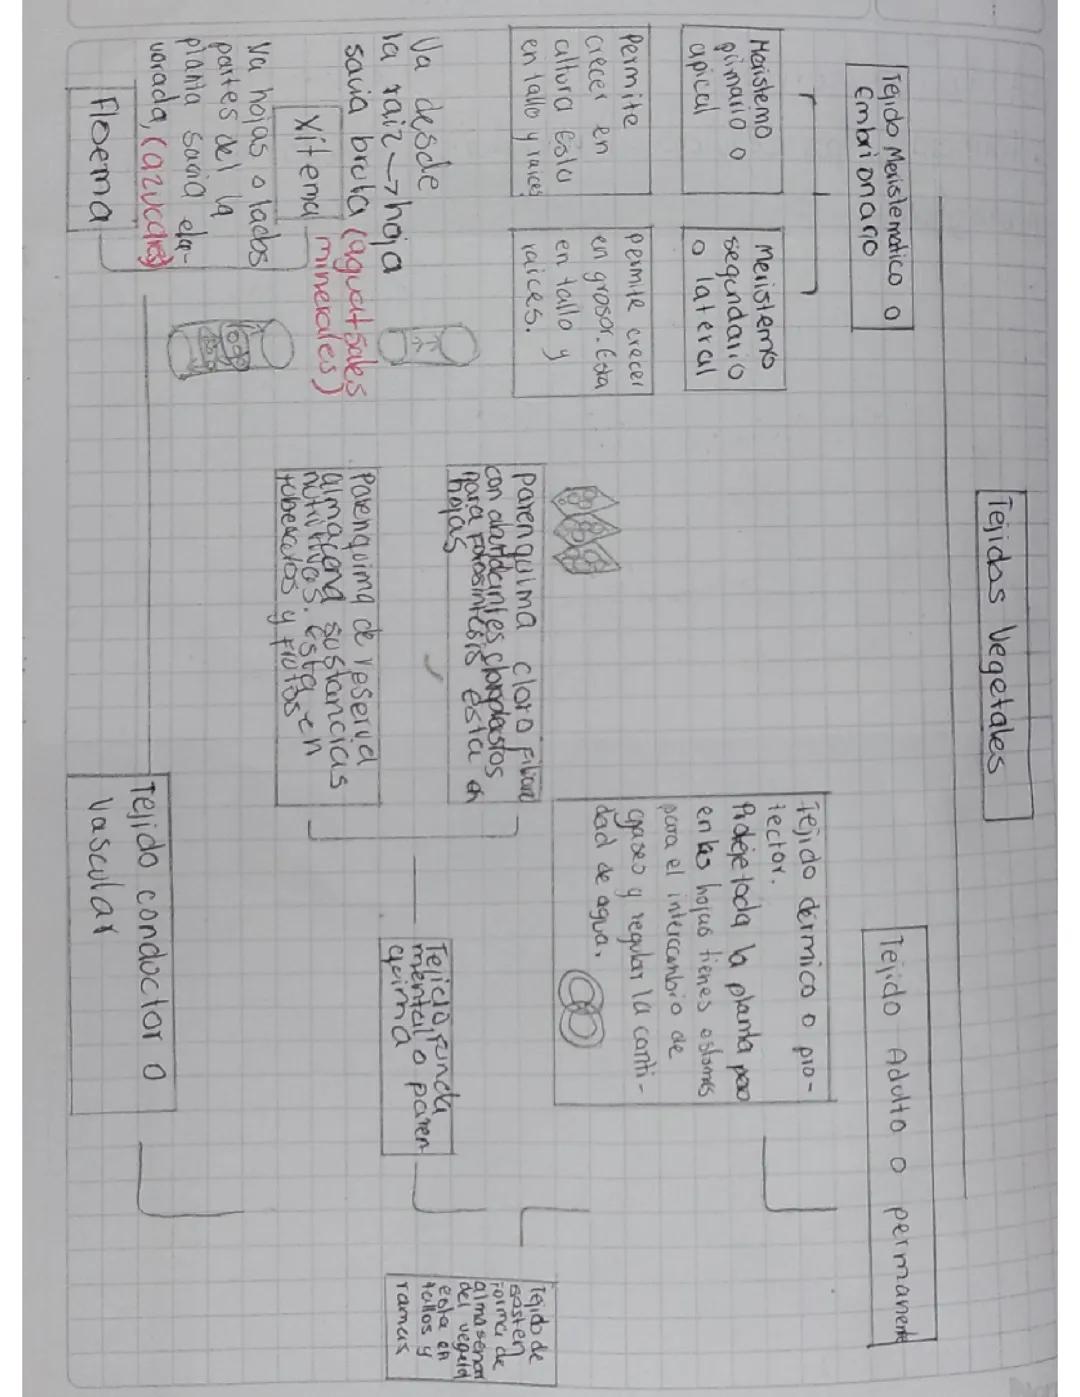 Tejidos Vegetales
Tejido Meristematico o
Embrionario
Meristemo
primario o
apical
Meristemo
segundario
o lateral
Permite
crecer en
altura Esta
en tallo y raices
permite crecer
en grosor. Esta
en tallo y
raices.
Tejido Adulto o permanente
Tejido dérmico o pro-
tector.
Proteje toda la planta
en las hojas tienes estomas
para el intercambio de
gases y regular la canti-
dad de agua.
Tejido Funda
mental o paren
quima
parenquima cloro filiano
con abundantes cloroplastos
para fotosintesis esta en
hojas
Parenquima de reserva
almacena sustancias
nutritivas. esta en
tuberculos y frutos
Tejido de
sosten
forma de
almasenar
del
esta en
tallos y
ramas
Tejido conductor o
Vascular
Va desde
la raiz → hoja
savia bruta (agua + sales
minerales)
Xilema
Va hojas o lados
partes del la
planta savia ela-
vorada, (azucares)
Floema